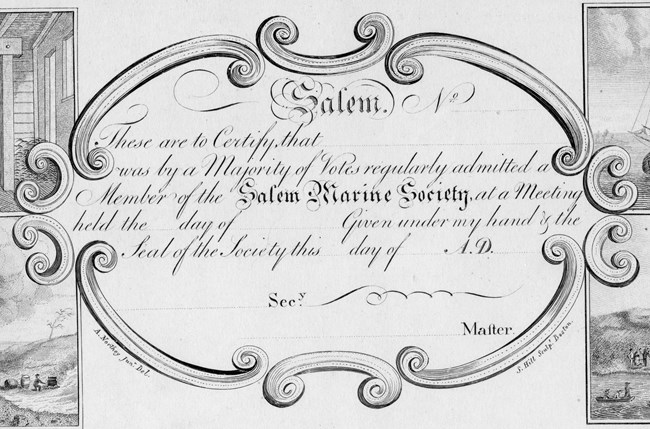 Salem. No.
These are to Certify, that
was by a Majority of Votes regularly admitted a
Member of the Salem Marine Society, at a Meeting
held the day of Given under my hand & the
Seal of the Society this day of A.D.
Secy.
Master.
A. Northey Junr. Del.
S. Hill Sculp. Boston.